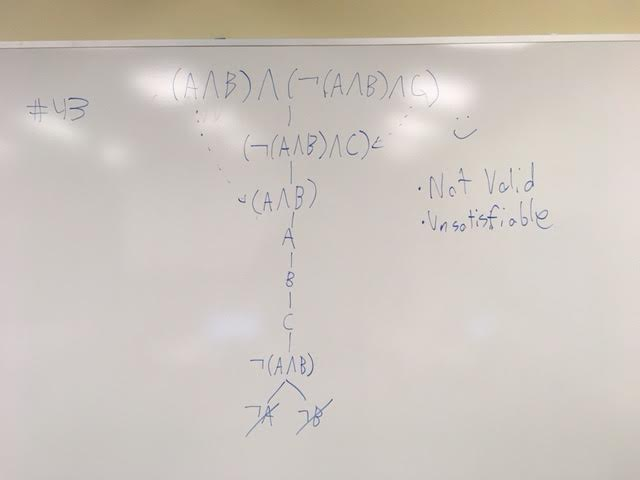 #43
(A∧B)∧(¬(A∧B)∧C)
(¬(A∧B)∧C)
(A∧B)
A
B
C
¬(A∧B)
¬A ¬B
• Not Valid
• Unsatisfiable